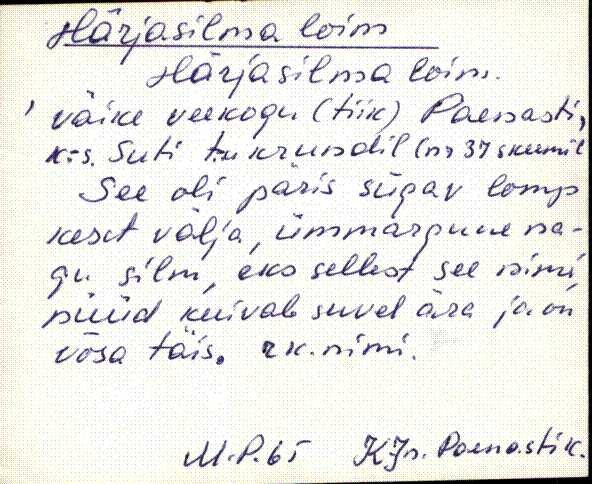 Härjasilma loim
Härjasilma loim.
väike veekogu (tiik) Paenasti,
k-s. Suti t-u krundil (nr 37 skeemil
See oli päris sügav lomp
keset välja, ümmargune na-
gu silm, eks sellest see nimi,
nüüd kuivab suvel ära ja on
võsa täis. rk. nimi.
M.P.65 KJn. Paenastik.